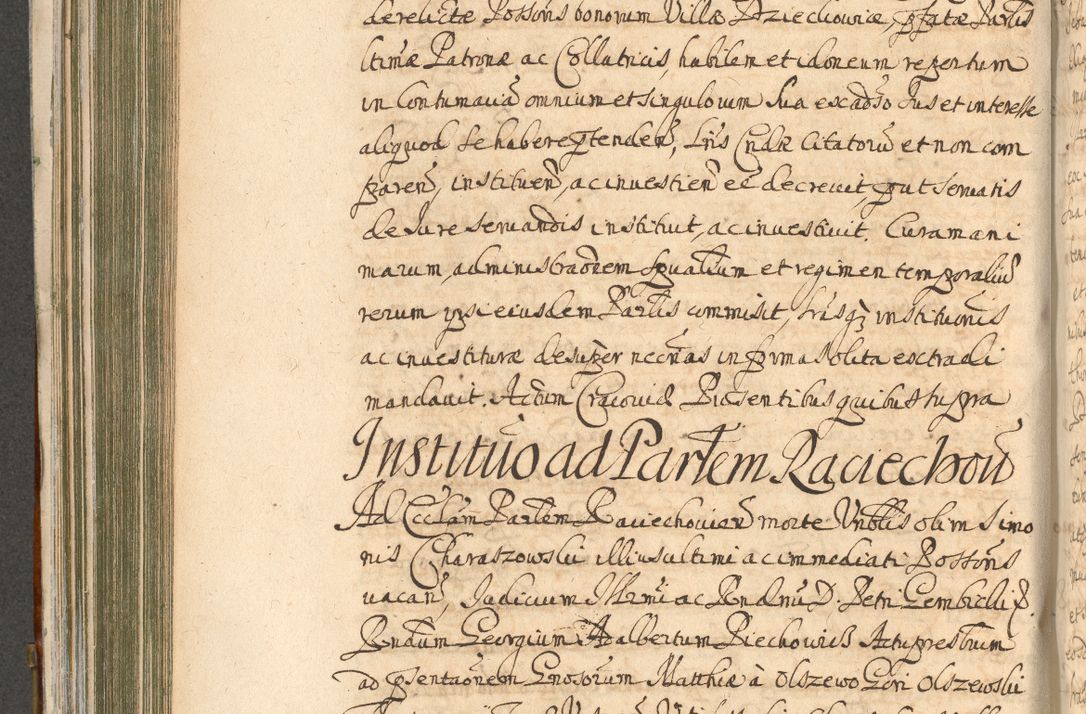 derelictæ Possoris bonorum Villæ Dzieckowice, pfatæ Parlis
ltimæ Patronæ ac Collatricis, habilem et idoneum repertum
in Contumaciã omnium et singulorum sua ex cadso Jus et interesse
aliquod se habere ptendeñ, Lris Cndæ Citatorũ et non com
pareñ, instituen, ac investien eẽ decrevit, put servatis
de Jure servandis instituit, ac investivit. Curam ani
marum, administraõnem spualium et regimen temporaliũ
rerum ipsi eiusdem Parlis commisit, lrasq; institutionis
ac investituræ desuper necrias in forma solita extradi
mandavit. Actum Cracoviæ Præsentibus quibus supra
Institutio ad Parlem Raciechoũ
Ad Ecclam Parlem Raciechovien morte Vnblis olim Simo
nis Charaszowski illius ultimi ac immediati Possoris
vacan, Judicium Illrmi ac Rndmi D. Petri Gembicki P.
Rndum Georgium Adalbertum Piechowicz Actu presbrum
ad psentaõnem Gnosorum Matthiæ à Olszewo Gori Olszewski